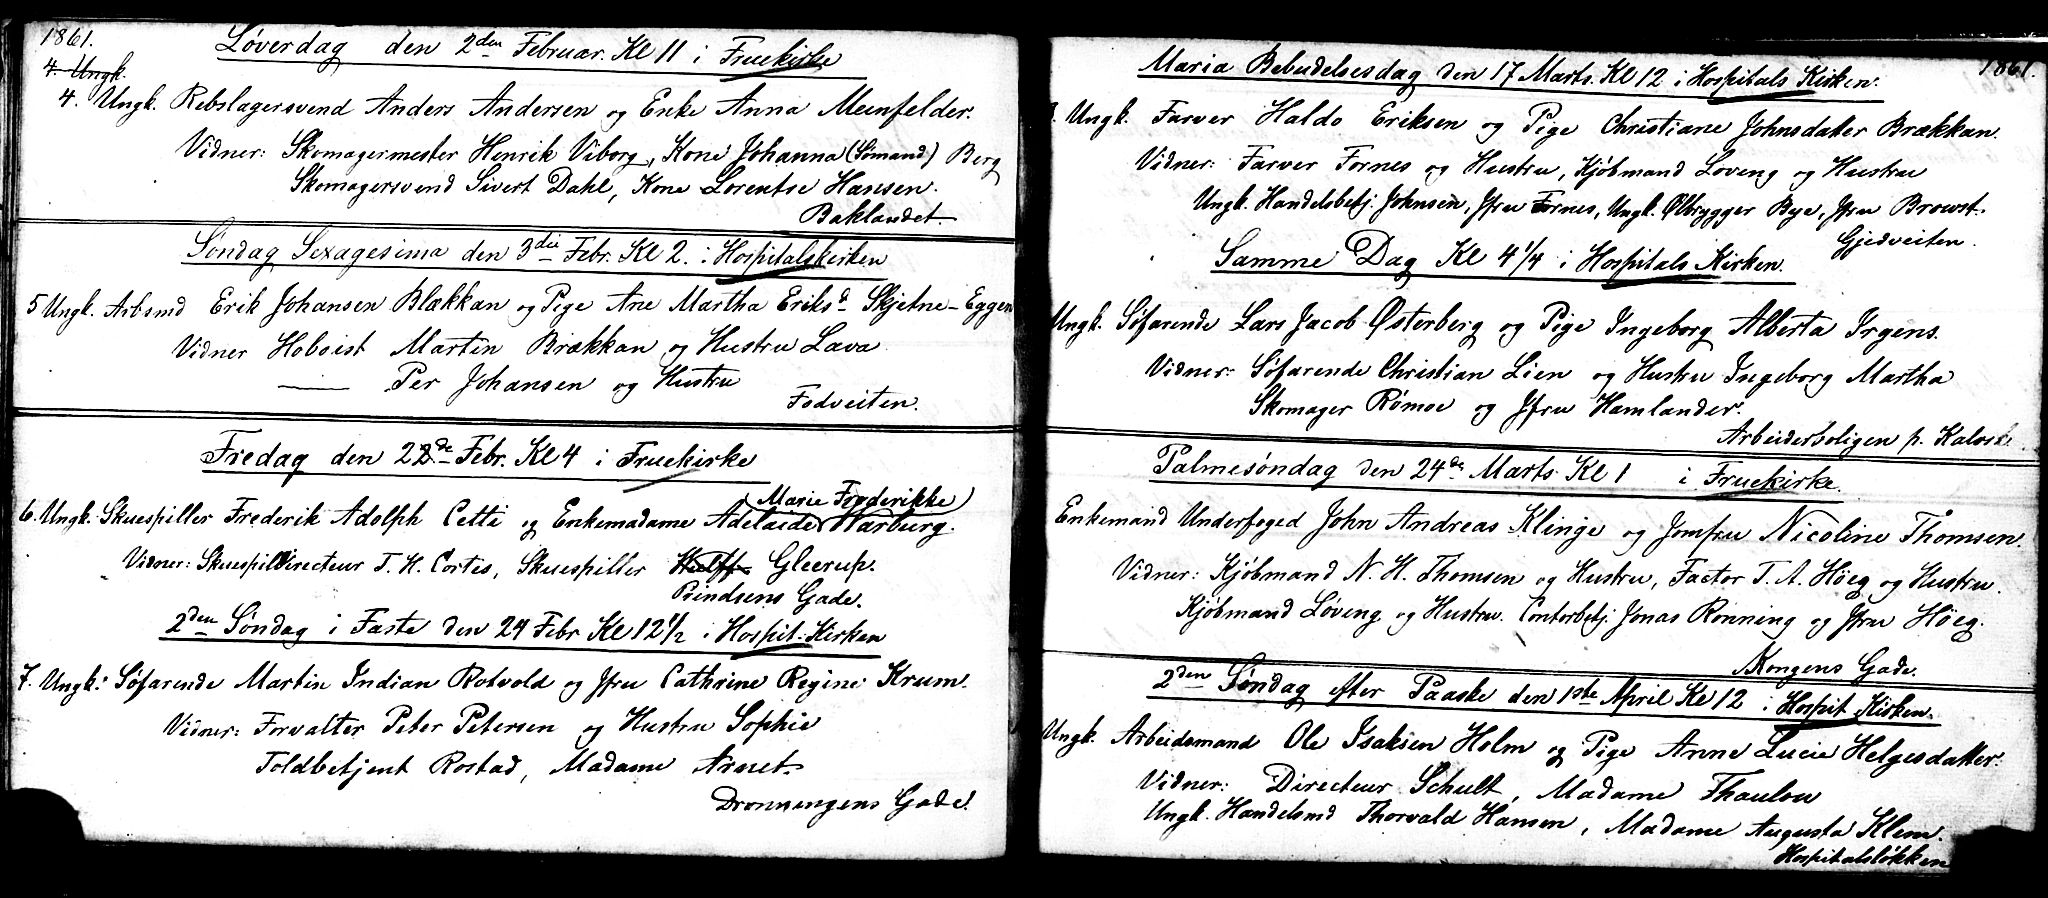 1861.
Løverdag den 2den Februar. Kl 11 i Fruekirke
4. Ungk.
4. Ungk. Rebslagersvend Anders Andersen og Enke Anna Meinfelder.
Vidner: Skomagermester Henrik Viborg, Kone Johanna (Sømand) Berg
Skomagersvend Sivert Dahl, Kone Lorentse Hansen.
Baklandet.
Søndag Sexagesima den 3die Febr. Kl 2. i Hospitalskirken
5 Ungk. Arbsmd Erik Johansen Blækkan og Pige Ane Martha Eriksd Skjetne-Eggen
Vidner Hoboist Martin Brækkan og Hustru Lava
—— Per Johansen og Hustru
Fodveiten.
Fredag den 22de Febr. Kl 4 i Fruekirke
(Marie Frederikke)
6. Ungk. Skuespiller Frederik Adolph Cetti og Enkemadame Adelaide Harburg.
Vidner: Skuespildirecteur T. H. Cortes, Skuespiller Wulff Gleerup.
Bindsens Gade.
2den Søndag i Faste den 24 Febr Kl 12 1/2 i Hospit. Kirken
7. Ungk: Søfarende Martin Indian Rotvold og Jfru Cathrine Regine Krum.
Vidner: Forvalter Peter Petersen og Hustru Sophie
Toldbetjent Rostad, Madame Arnet.
Dronningens Gade.
1861.
Maria Bebudelsesdag den 17 Marts. Kl 12 i Hospitals Kirken.
Ungk. Farver Haldo Eriksen og Pige Christiane Johnsdatter Brækkan.
Vidner: Farver Fornes og Hustru, Kjøbmand Loveng og Hustru
Ungk. Handelsbetj. Johnsen, Jfru Fornes, Ungk. Ølbrygger Bye, Jfru Browst.
Gjedveiten.
Samme Dag Kl 4 1/4 i Hospitals Kirken.
Ungk. Søfarende Lars Jacob Østerberg og Pige Ingeborg Alberta Irgens.
Vidner: Søfarende Christian Lien og Hustru Ingeborg Martha
Skomager Rømoe og Jfru Hamlander.
Arbeiderboligen p. Kalvsk.
Palmesøndag den 24de Marts Kl 1 i Fruekirke.
Enkemand Underfoged John Andreas Klinge og Jomfru Nicoline Thomsen.
Vidner: Kjøbmand N. H. Thomsen og Hustru, Factor T. A. Høeg og Hustru.
Kjøbmand Løveng og Hustru. Contorbetj. Jonas Rønning og Jfru Høeg.
Kongens Gade.
2den Søndag efter Paaske den 1ste April Kl 12 i Hospit Kirken.
Ungk. Arbeidsmand Ole Isaksen Holm og Pige Anne Lucie Helgesdatter.
Vidner: Directeur Schult, Madame Thaulow
Ungk. Handelsmd Thorvald Hansen, Madame Augusta Klem.
Hospitalsløkken